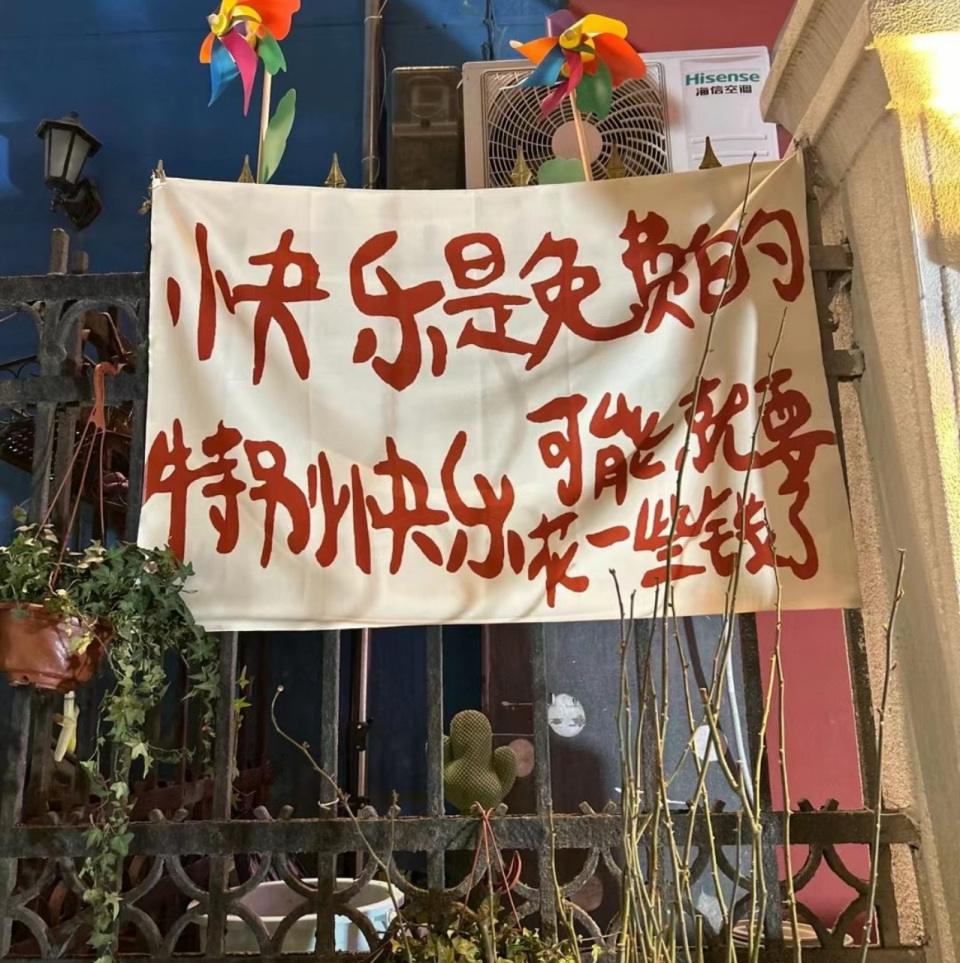 Hisense
海信空调
快乐是免费的
特别快乐可能就要
花一些钱了